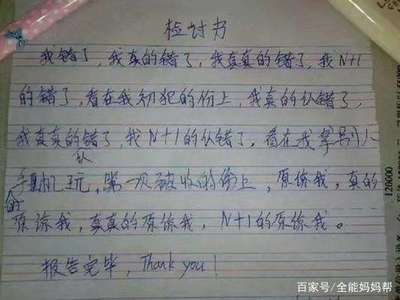 检讨书
我错了，我真的错了，我真真的错了，我N+1
的错了，看在我初犯的份上，我真的认错了，
我真真的错了，我N+1的认错了。看在我拿别人
认
手机玩，第一次被收的份上，原谅我，真的
的
原谅我，真真的原谅我，N+1的原谅我。
报告完毕，Thank you!
12600
百家号/全能妈妈帮